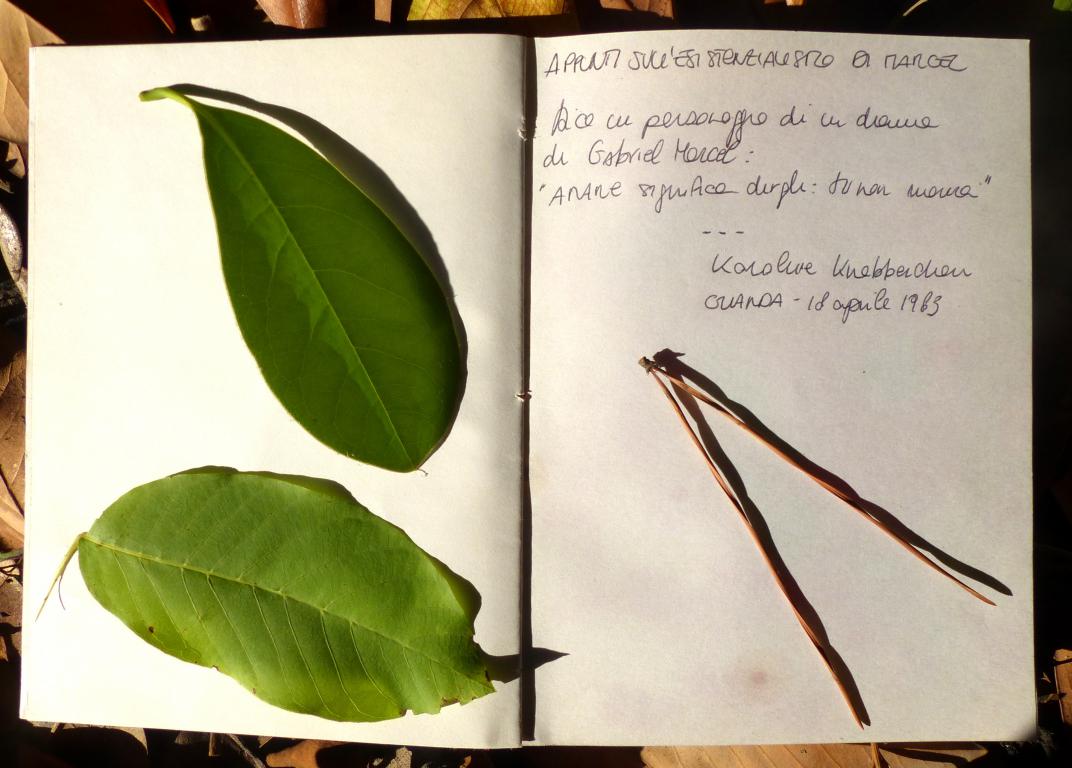 APPUNTI SULL'ESISTENZIALISMO DI MARCEL
Dice un personaggio di un dramma
di Gabriel Marcel:
"AMARE significa dirgli: tu non morrai"
---
Karoline Knabberchen
18 aprile 1983